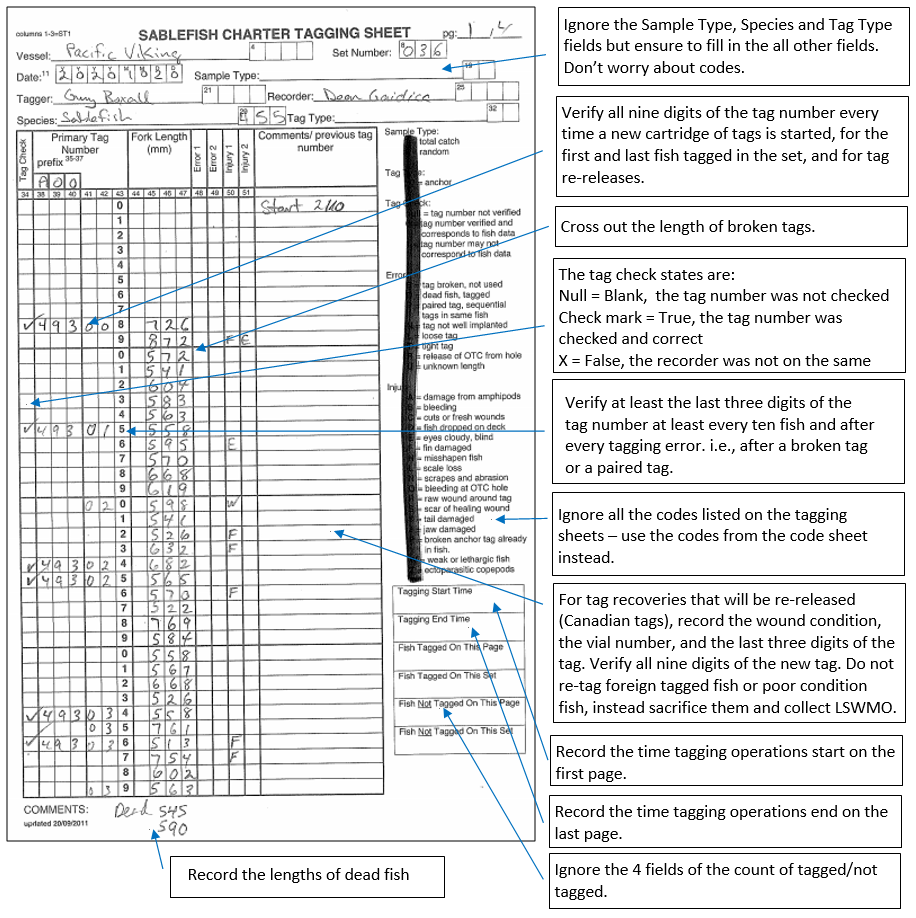 columns 1-3=ST1
SABLEFISH CHARTER TAGGING SHEET
pg: 1 , 4
Vessel: Pacific Viking
4
Set Number: 8 036
Date: 11 20201020
Sample Type:
19
Tagger: Guy Boxall
21
Recorder: Dean Gaidica
25
Species: Sablefish
29 455
Tag Type:
32
Tag Check
Primary Tag Number
prefix 35-37
A00
Fork Length (mm)
Error 1
Error 2
Injury 1
Injury 2
Comments/ previous tag number
34 38 39 40 41 42 43 44 45 46 47 48 49 50 51
0 Start 2110
1
2
3
4
5
6
7
✓ 49300 8 726
9 872 F E
0 572
1 541
2 604
3 583
4 563
✓ 49301 5 558
6 595 E
7 570
8 668
9 619
02 0 598 W
1 541
2 526 F
3 632 F
✓ 49302 4 682
✓ 49302 5 565
6 570 F
7 522
8 769
9 584
0 558
1 567
2 668
3 526
✓ 49303 4 558
03 5 761
✓ 49303 6 513 F
7 754 F
8 602
03 9 563
COMMENTS: Dead 545
590
updated 20/09/2011
Sample Type:
total catch
random
Tag
= anchor
Tag
= tag number not verified
tag number verified and
corresponds to fish data
tag number may not
correspond to fish data
Error
tag broken, not used
dead fish, tagged
paired tag, sequential
tags in same fish
tag not well implanted
loose tag
tight tag
release of OTC from hole
unknown length
Inju
= damage from amphipods
= bleeding
= cuts or fresh wounds
= fish dropped on deck
= eyes cloudy, blind
= fin damaged
= misshapen fish
= scale loss
= scrapes and abrasion
= bleeding at OTC hole
= raw wound around tag
= scar of healing wound
= tail damaged
= jaw damaged
= broken anchor tag already
in fish.
= weak or lethargic fish
= ectoparasitic copepods
Tagging Start Time
Tagging End Time
Fish Tagged On This Page
Fish Tagged On This Set
Fish Not Tagged On This Page
Fish Not Tagged On This Set
Ignore the Sample Type, Species and Tag Type
fields but ensure to fill in the all other fields.
Don’t worry about codes.
Verify all nine digits of the tag number every
time a new cartridge of tags is started, for the
first and last fish tagged in the set, and for tag
re-releases.
Cross out the length of broken tags.
The tag check states are:
Null = Blank, the tag number was not checked
Check mark = True, the tag number was
checked and correct
X = False, the recorder was not on the same
Verify at least the last three digits of the
tag number at least every ten fish and after
every tagging error. i.e., after a broken tag
or a paired tag.
Ignore all the codes listed on the tagging
sheets – use the codes from the code sheet
instead.
For tag recoveries that will be re-released
(Canadian tags), record the wound condition,
the vial number, and the last three digits of the
tag. Verify all nine digits of the new tag. Do not
re-tag foreign tagged fish or poor condition
fish, instead sacrifice them and collect LSWMO.
Record the time tagging operations start on the
first page.
Record the time tagging operations end on the
last page.
Ignore the 4 fields of the count of tagged/not
tagged.
Record the lengths of dead fish